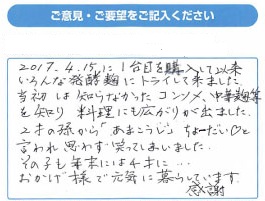 ご意見・ご要望をご記入ください
2017.4.15に1台目を購入して以来
いろんな発酵麹にトライして来ました
当初は知らなかったコンソメ、中華麹等
を知り 料理にも広がりが出ました
2才の孫から「あまこうじ ちょーだい♡と
言われ思わず笑ってしまいました
その子も年末には4才に…
おかげ様で元気に暮らしています
感謝